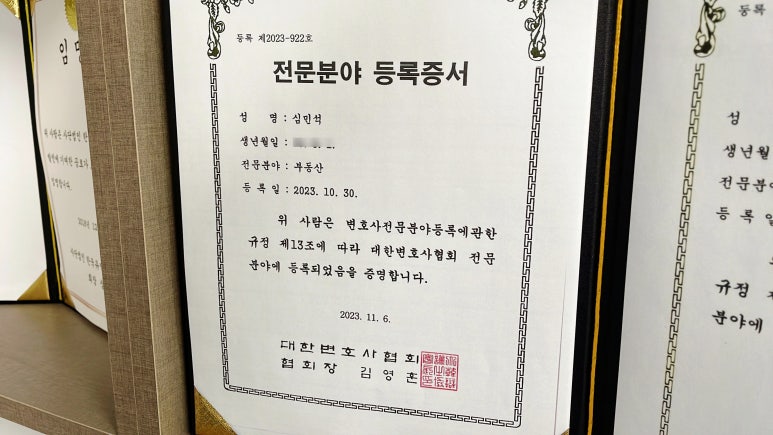 등록 제2023-922호
전문분야 등록증서
성 명 : 심민석
생년월일 :
전문분야 : 부동산
등 록 일 : 2023. 10. 30.
위 사람은 변호사전문분야등록에관한
규정 제13조에 따라 대한변호사협회 전문
분야에 등록되었음을 증명합니다.
2023. 11. 6.
대한변호사협회
협회장 김영훈
임
등록
성
생년월
전문분
등 록 일
규정
분야에